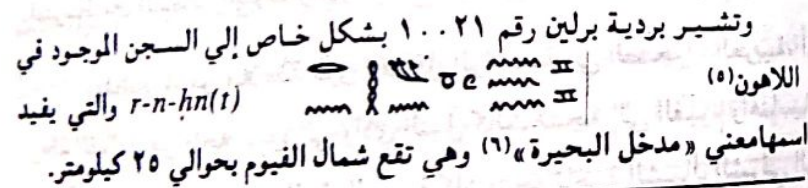 وتشير بردية برلين رقم ١٠٠٢١ بشكل خاص إلي السجن الموجود في
اللاهون(٥) r-n-ḥn(t) والتي يفيد
اسمهامعني «مدخل البحيرة»(٦) وهي تقع شمال الفيوم بحوالي ٢٥ كيلومتر.